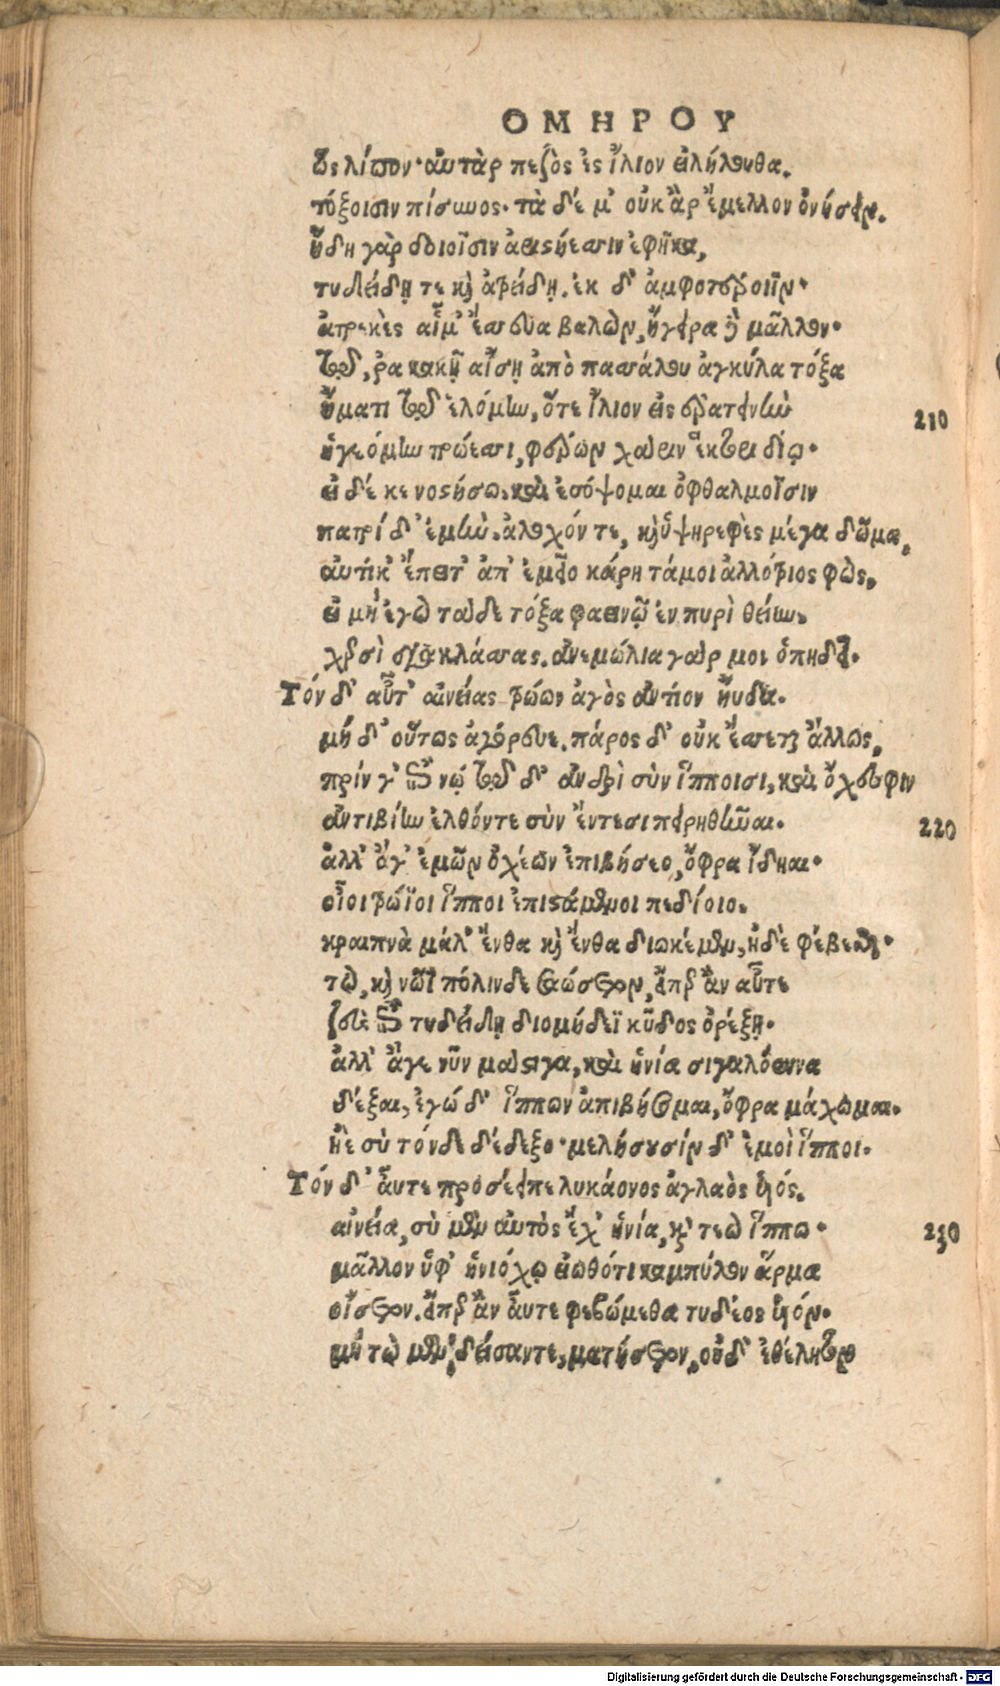 ΟΜΗΡΟΥ
ὣς λίπον· αὐτὰρ πεζὸς ἐς ἴλιον εἰλήλουθα.
τόξοισιν πίσυνος· τὰ δέ μ' οὐκ ἂρ ἔμελλον ὀνήσειν.
ἤδη γὰρ δοιοῖσιν ἀριστήεσσιν ἐφῆκα,
τυδείδῃ τε καὶ ἀτρείδῃ. ἐκ δ' ἀμφοτέροιϊν·
ἀτρεκὲς αἷμ' ἔσσευα βαλὼν, ἤγειρα δὲ μᾶλλον·
τῷ, ῥα κακῇ αἴσῃ ἀπὸ πασσάλου ἀγκύλα τόξα
ἤματι τῷ ἑλόμην, ὅτε ἴλιον εἰς ἐρατεινὴν
210
ἡγεόμην τρώεσσι, φέρων χάριν ἕκτορι δίῳ·
εἰ δέ κε νοστήσω. καὶ ἐσόψομαι ὀφθαλμοῖσιν
πατρίδ' ἐμὴν. ἄλοχόν τε, καὶ ὑψηρεφὲς μέγα δῶμα,
αὐτίκ' ἔπειτ' ἀπ' ἐμεῖο κάρη τάμοι ἀλλότριος φὼς,
εἰ μὴ ἐγὼ τάδε τόξα φαεινῷ ἐν πυρὶ θείην.
χερσὶ διακλάσσας. ἀνεμώλια γάρ μοι ὀπηδεῖ.
Τόν δ' αὖτ' αἰνείας τρώων ἀγὸς ἀντίον ηὔδα.
μὴ δ' οὕτως ἀγόρευε. πάρος δ' οὐκ ἔσσεται ἄλλως,
πρίν γ' ἐπὶ νώ τῷ δ' ἀνδρὶ σὺν ἵπποισι, καὶ ὄχεσφιν
ἀντιβίην ἐλθόντε σὺν ἔντεσι πειρηθῆναι.
220
ἀλλ' ἄγ' ἐμῶν ὀχέων ἐπιβήσεο, ὄφρα ἴδηαι·
οἷοι τρώϊοι ἵπποι ἐπιστάμενοι πεδίοιο.
κραιπνὰ μάλ' ἔνθα καὶ ἔνθα διωκέμεν, ἠδὲ φέβεσθαι·
τὼ, καὶ νῶϊ πόλινδε σαώσετον, εἴπερ ἂν αὖτε
ζεὺς ἐπὶ τυδείδῃ διομήδεϊ κῦδος ὀρέξῃ.
ἀλλ' ἄγε νῦν μάστιγα, καὶ ἡνία σιγαλόεντα
δέξαι, ἐγώ δ' ἵππων ἀπιβήσομαι, ὄφρα μάχωμαι.
ἠὲ σὺ τόνδε δέδεξο· μελήσουσίν δ' ἐμοὶ ἵπποι.
Τόν δ' αὖτε προσέειπε λυκάονος ἀγλαὸς υἱός.
αἰνεία, σὺ μὲν αὐτὸς ἔχ' ἡνία, καὶ τεὼ ἵππω·
230
μᾶλλον ὑφ' ἡνιόχῳ εἰωθότι καμπύλον ἅρμα
οἴσετον. εἴπερ ἂν αὖτε φεβώμεθα τυδέος υἱόν.
μὴ τὼ μὲν, δείσαντε, ματήσετον, οὐδ' ἐθέλητον
Digitalisierung gefördert durch die Deutsche Forschungsgemeinschaft - DFG